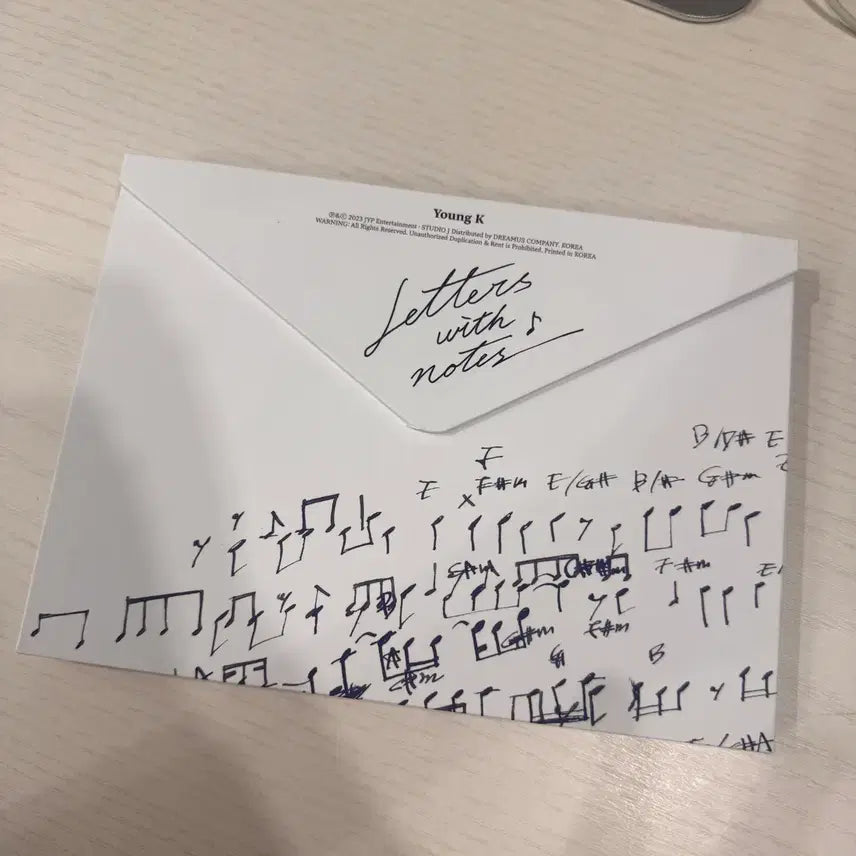 Young K
℗&© 2023 JYP Entertainment · STUDIO J Distributed by DREAMUS COMPANY. KOREA
WARNING: All Rights Reserved. Unauthorized Duplication & Rent is Prohibited. Printed in KOREA
Letters
with ♪
notes
B/D# E
F
E F#m E/G# G#m
F#m
G#m F#m
B
C#m